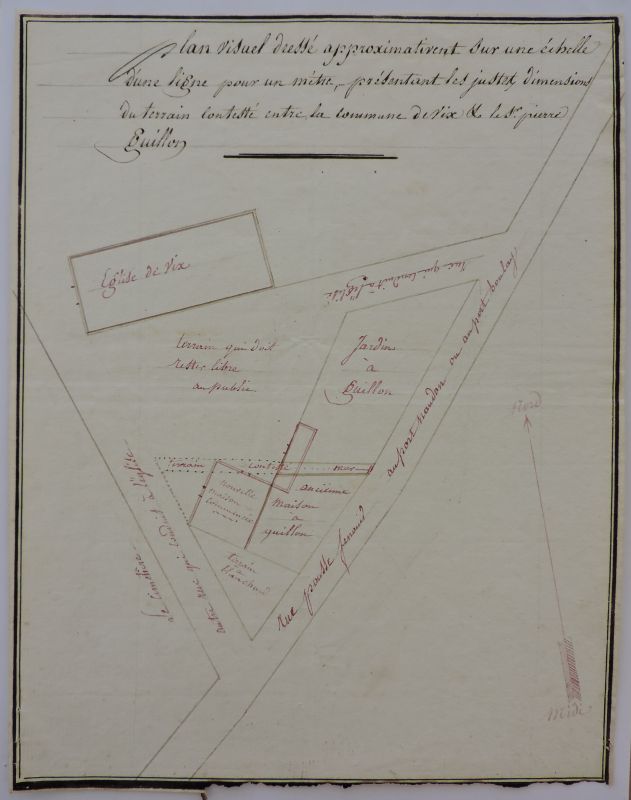 Plan visuel dressé approximativent sur une échelle
d'une ligne pour un métre, présentant les justes dimensions
du terrain contesté entre la commune de vix & le Sr. pierre
Guillon
Eglise de Vix
rue qui conduit à l'église
terrain qui doit
rester libre
au public
Jardin
à
Guillon
au port naudon ou au port
Nord
terrain contesté mar
nouvelle
maison
commune
ancienne
maison
a
guillon
terrain
a
blanchard
le cimetiere
autre rue qui conduit à l'église
rue
Midi